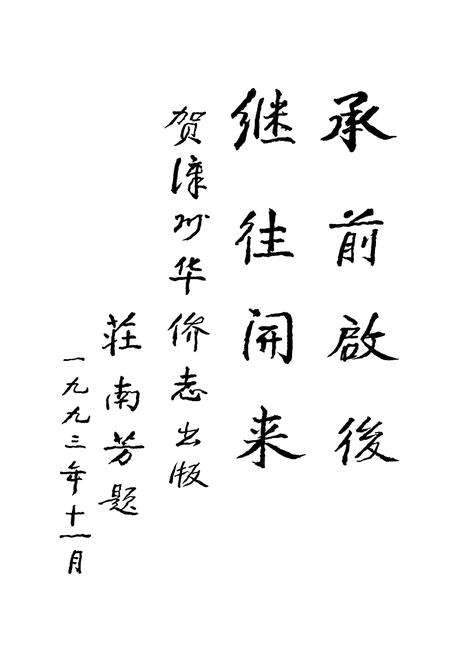 承前啟後
継往開来
贺漳州华侨志出版
莊南芳题
一九九三年十一月